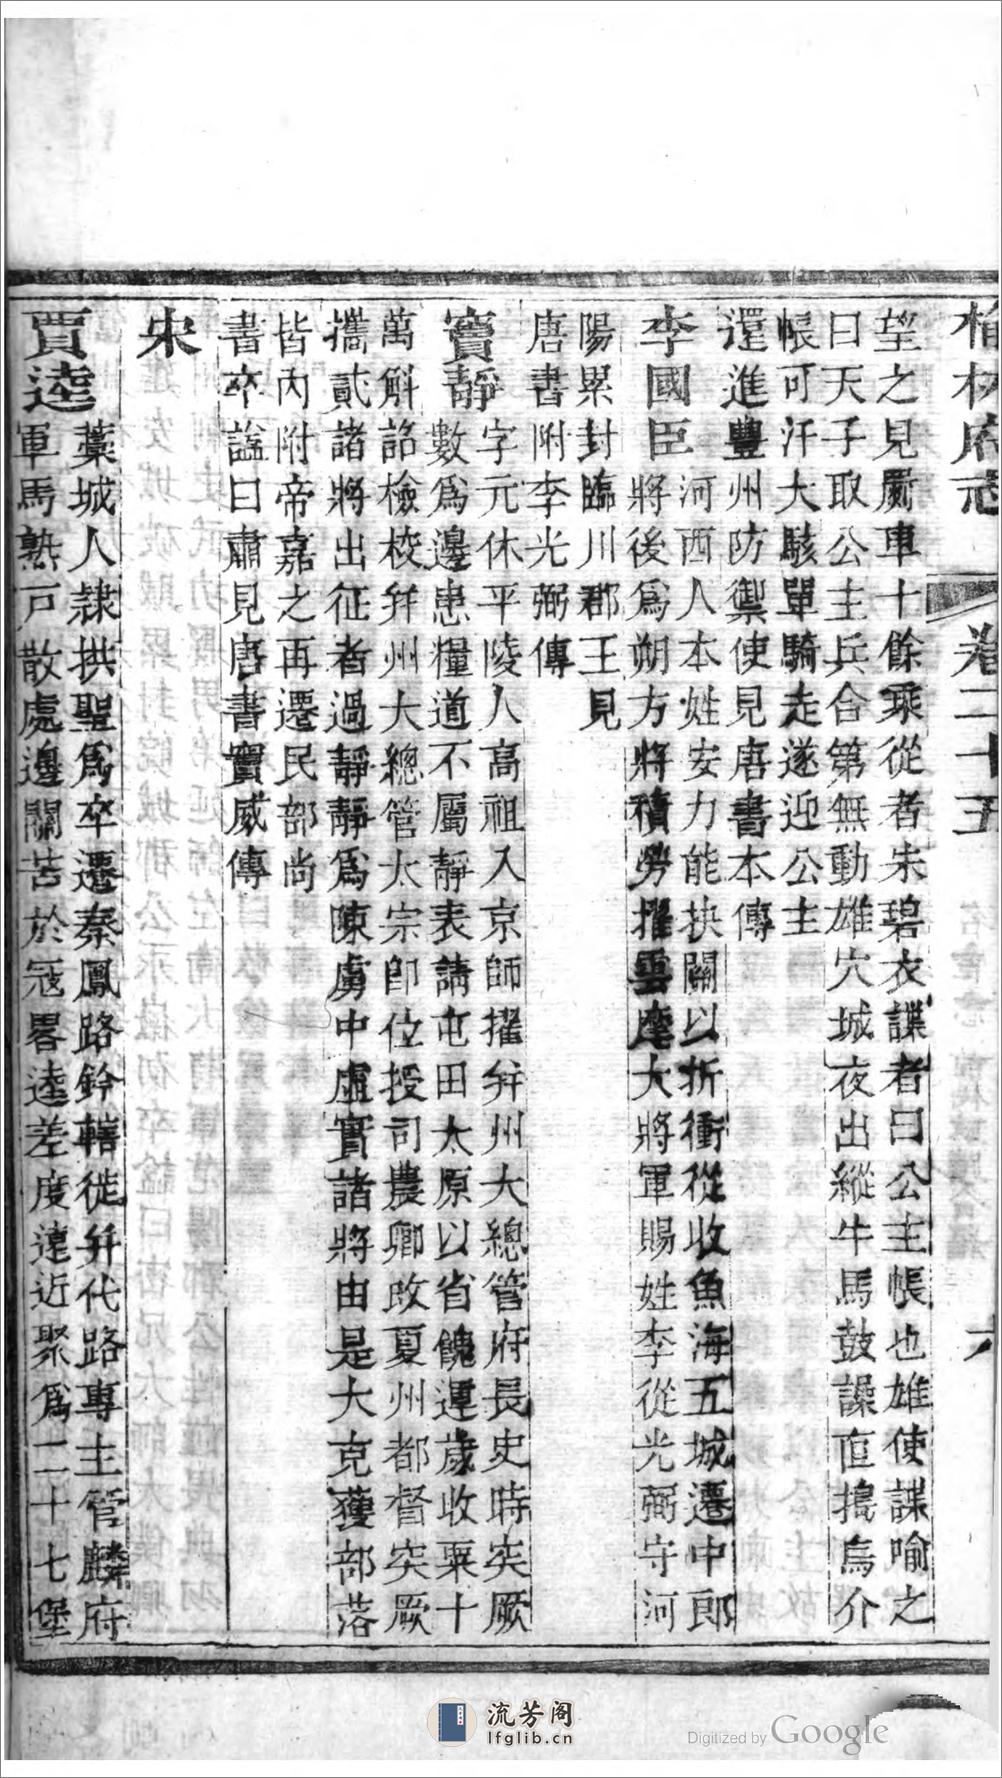 榆林府志 卷二十五 名宦志
望之見罽車十餘乘從者朱碧衣諜者曰公主帳也雄使諜喻之
曰天子取公主兵合第無動雄穴城夜出縱牛馬鼓譟直擣烏介
帳可汗大駭單騎走遂迎公主
還進豐州防禦使見唐書本傳
李國臣河西人本姓安力能抉關以折衝從收魚海五城遷中郎
將後爲朔方將積勞擢雲麾大將軍賜姓李從光弼守河
陽累封臨川郡王見
唐書附李光弼傳
竇靜字元休平陵人高祖入京師擢幷州大總管府長史時突厥
數爲邊患糧道不屬靜表請屯田太原以省餽運歲收粟十
萬斛詔檢校幷州大總管太宗卽位授司農卿改夏州都督突厥
攜貳諸將出征者過靜靜爲陳虜中虛實諸將由是大克獲部落
皆內附帝嘉之再遷民部尚
書卒諡曰肅見唐書竇威傳
宋
賈逵藁城人隷拱聖爲卒遷秦鳳路鈐轄徙幷代路專主管麟府
軍馬熟戸散處邊關苦於冦畧逵差度遠近聚爲二十七堡
流芳阁
lfglib.cn
Digitized by Google